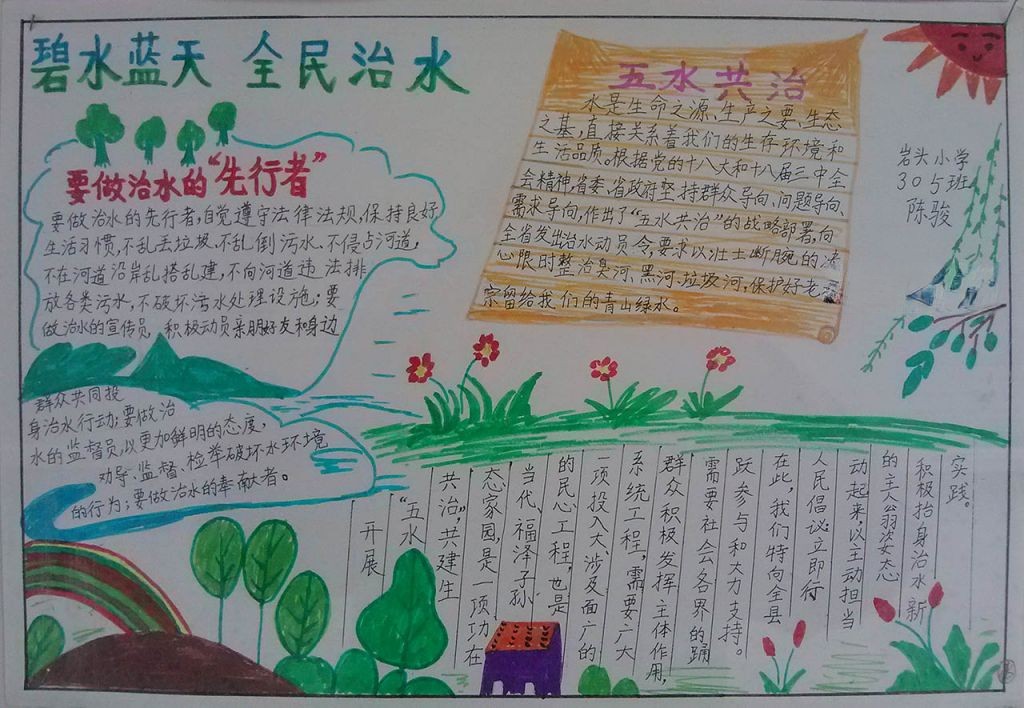 碧水蓝天 全民治水
要做治水的“先行者”
要做治水的先行者,自觉遵守法律法规,保持良好
生活习惯,不乱丢垃圾、不乱倒污水、不侵占河道,
不在河道沿岸乱搭乱建,不向河道违法排
放各类污水,不破坏污水处理设施;要
做治水的宣传员,积极动员亲朋好友和身边
群众共同投
身治水行动;要做治
水的监督员,以更加鲜明的态度,
劝导、监督、检举破坏水环境
的行为;要做治水的奉献者。
五水共治
水是生命之源、生产之要、生态
之基,直接关系着我们的生存环境和
生活品质。根据党的十八大和十八届三中全
会精神,省委、省政府坚持群众导向、问题导向、
需求导向,作出了“五水共治”的战略部署,向
全省发出治水动员令,要求以壮士断腕的决
心限时整治臭河、黑河、垃圾河,保护好老
宗留给我们的青山绿水。
岩头小学
305班
陈骏
开展
“五水
共治”,共建生
态家园,是一项功在
当代、福泽子孙
的民心工程,也是
一项投入大、涉及面广的
系统工程,需要广大
群众积极发挥主体作用,
需要社会各界的踊
跃参与和大力支持。
在此,我们特向全县
人民倡议立即行
动起来,以主动担当
的主人翁姿态
积极抬身治水新
实践。